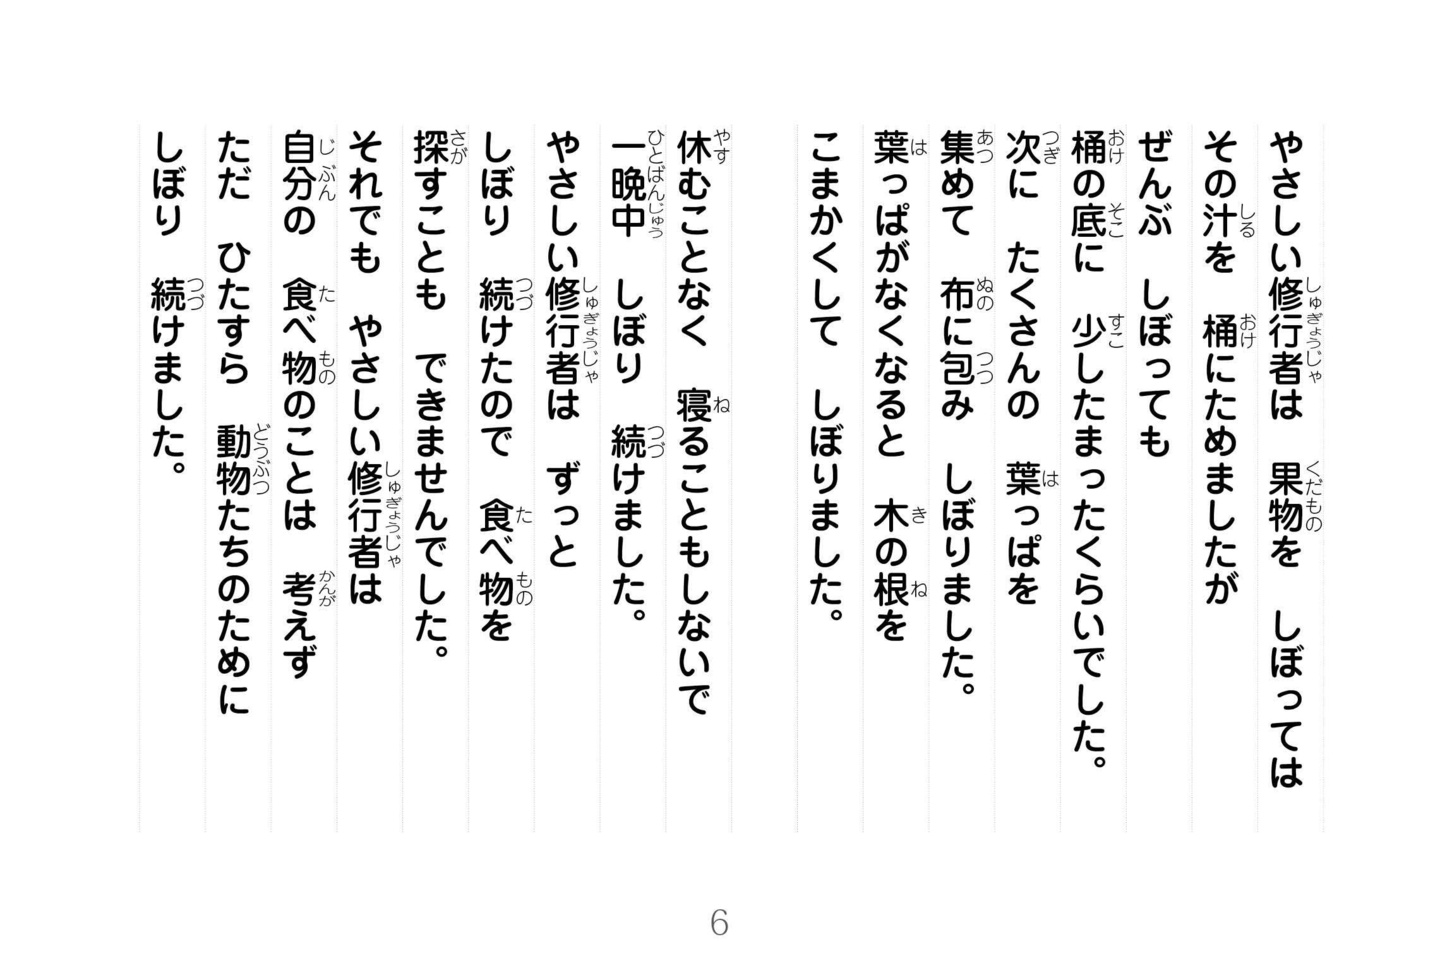 やさしい修行者は　果物を　しぼっては
その汁を　桶にためましたが
ぜんぶ　しぼっても
桶の底に　少したまったくらいでした。
次に　たくさんの　葉っぱを
集めて　布に包み　しぼりました。
葉っぱがなくなると　木の根を
こまかくして　しぼりました。
休むことなく　寝ることもしないで
一晩中　しぼり　続けました。
やさしい修行者は　ずっと
しぼり　続けたので　食べ物を
探すことも　できませんでした。
それでも　やさしい修行者は
自分の　食べ物のことは　考えず
ただ　ひたすら　動物たちのために
しぼり　続けました。
6